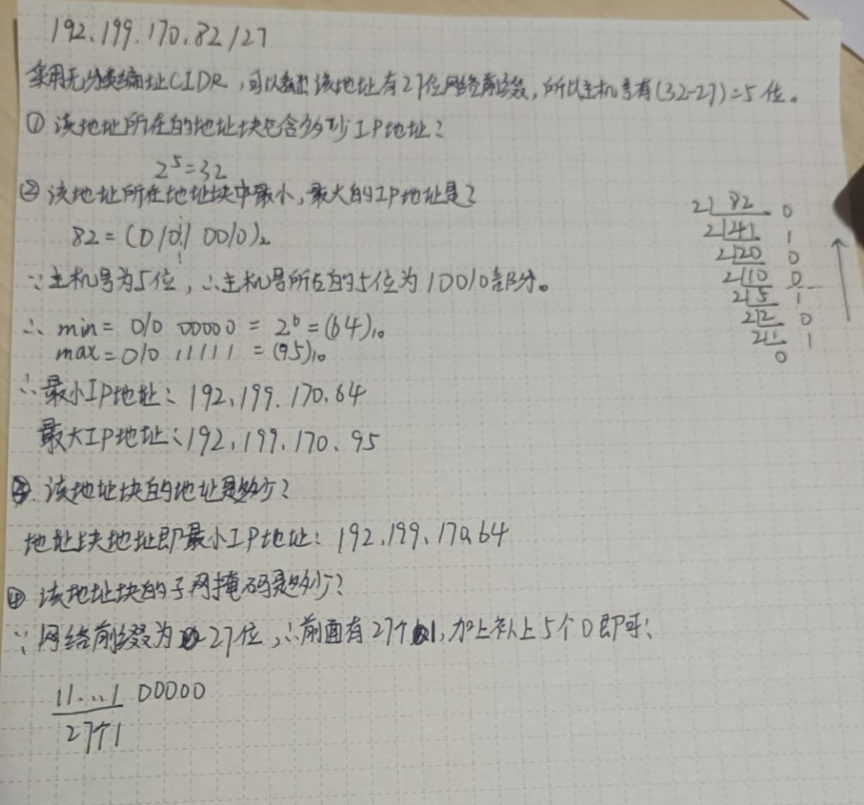 192.199.170.82/27
采用无分类编址CIDR，可以看出该地址有27位网络前缀，所以主机号有(32-27)=5位。
① 该地址所在的地址块包含多少IP地址？
2⁵=32
② 该地址所在地址块中最小，最大的IP地址是？
82=(0101 0010)₂
∵主机号为5位，∴主机号所占的5位为10010部分。
∴ min = 010 00000 = 2⁶=(64)₁₀
max=010 11111 = (95)₁₀
∴最小IP地址：192.199.170.64
最大IP地址：192.199.170.95
③ 该地址块的地址是多少？
地址块地址即最小IP地址：192.199.170.64
④ 该地址块的子网掩码是多少？
∵网络前缀为27位，∴前面有27个1，加上补上5个0即可：
11...1 00000
27个1
2 82 0
2 41 1
2 20 0
2 10 0
2 5 1
2 2 0
2 1 1
0